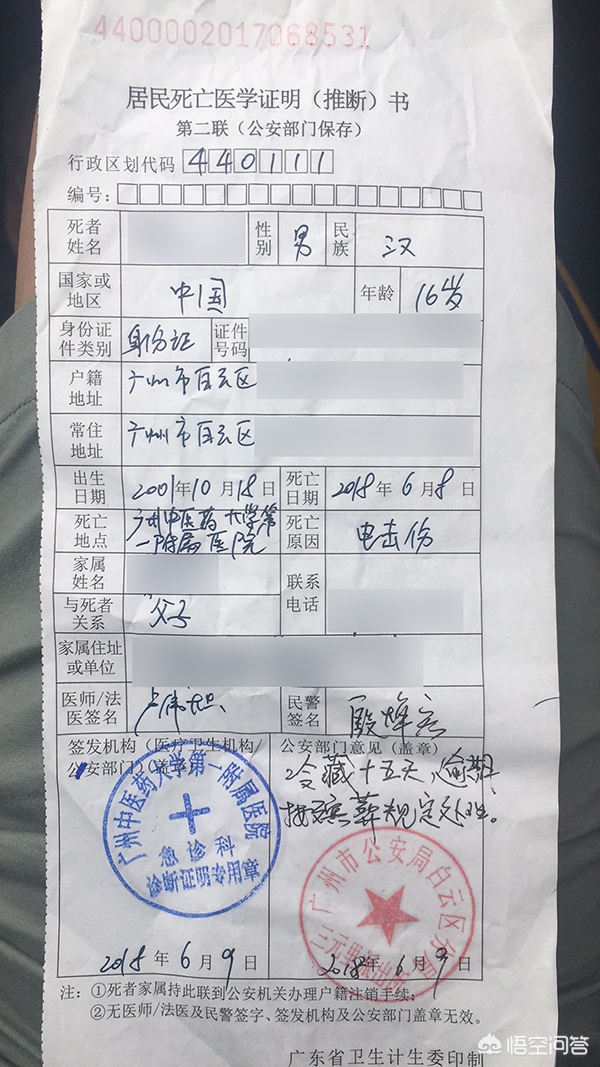 4400002017068531
居民死亡医学证明（推断）书
第二联（公安部门保存）
行政区划代码 440111
编号：
死者姓名 性别 男 民族 汉
国家或地区 中国 年龄 16岁
身份证件类别 身份证 证件号码
户籍地址 广州市白云区
常住地址 广州市白云区
出生日期 2001年10月18日 死亡日期 2018年6月8日
死亡地点 广州中医药大学第一附属医院 死亡原因 电击伤
家属姓名 联系电话
与死者关系 父子
家属住址或单位
医师/法医签名 民警签名
签发机构（医疗卫生机构/公安部门）（盖章） 公安部门意见（盖章）
冷藏十五天，逾期
按殡葬规定处理。
广州中医药大学第一附属医院
急诊科
诊断证明专用章
广州市公安局白云区分局
三元里派出所
2018年6月9日 2018年6月9日
注：①死者家属持此联到公安机关办理户籍注销手续；
②无医师/法医及民警签字、签发机构及公安部门盖章无效。
广东省卫生计生委印制
悟空问答